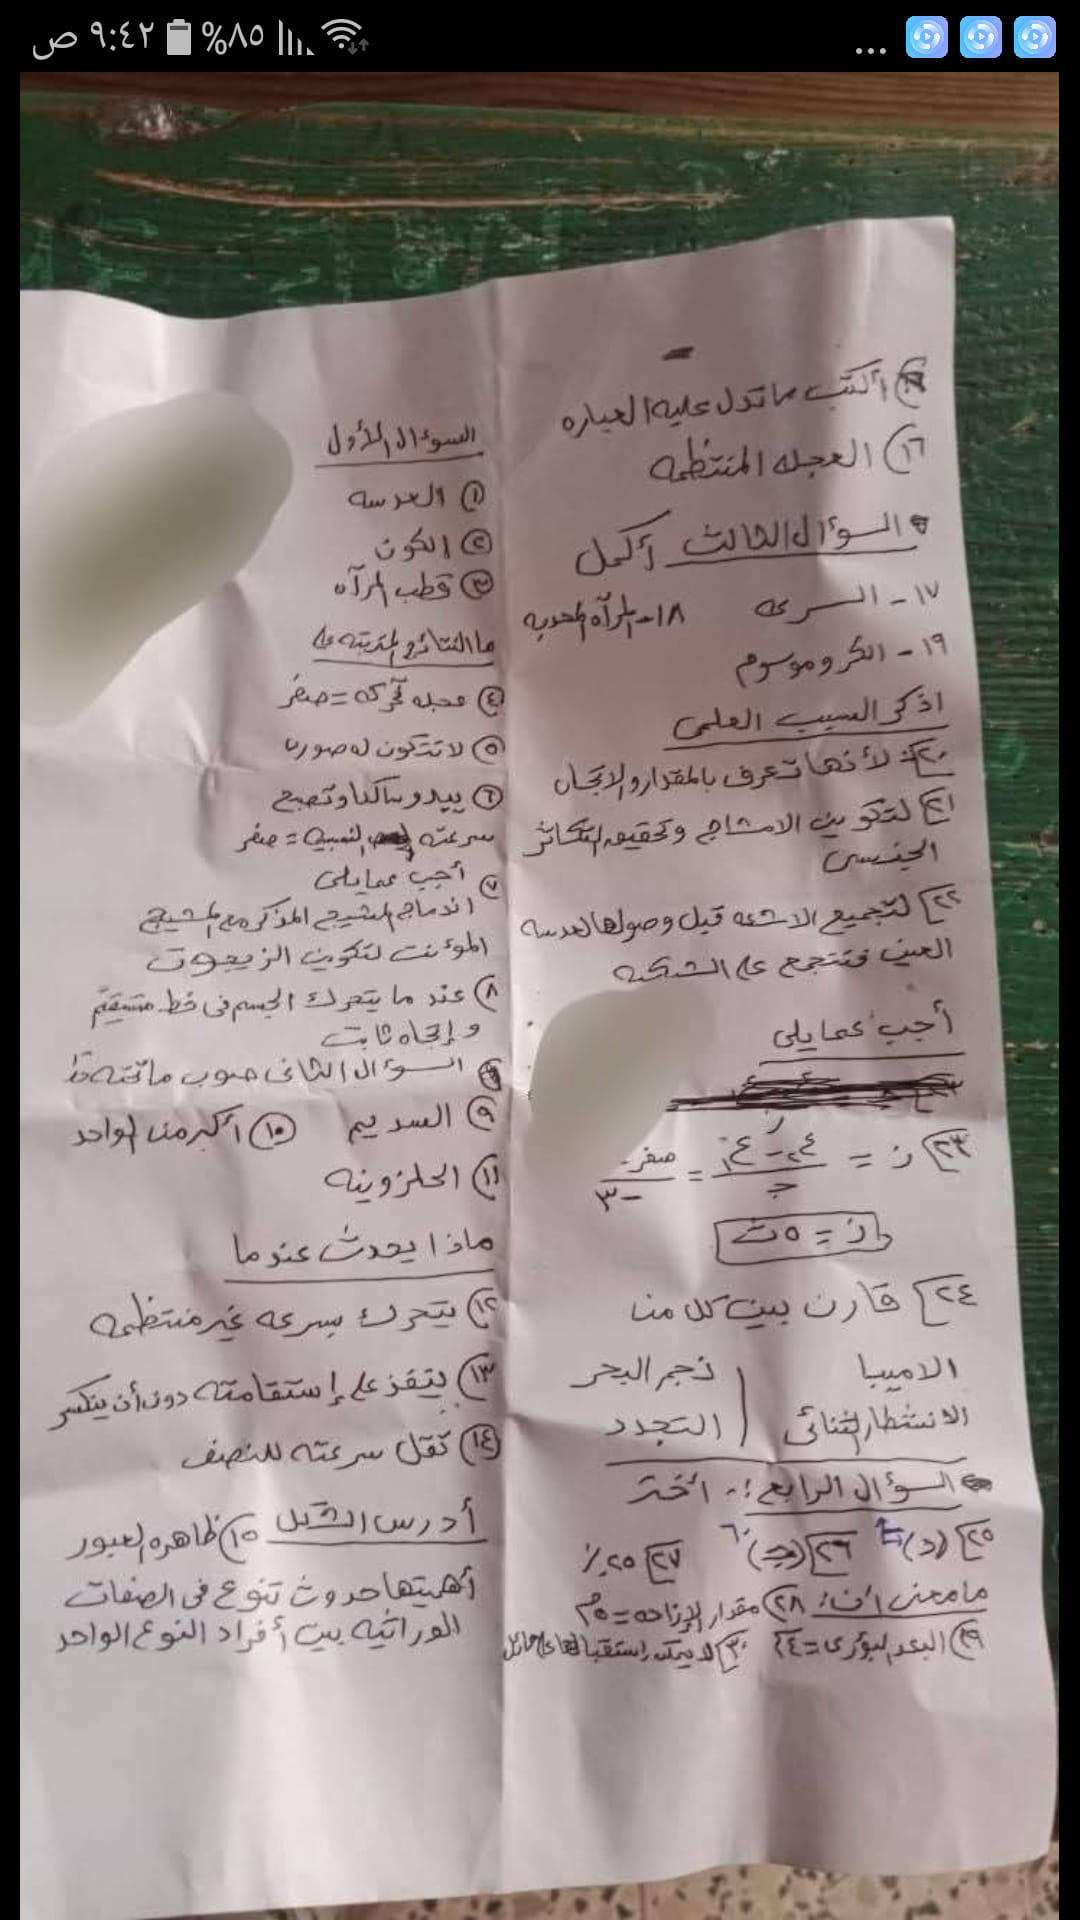 ٩:٤٢ ص
%٨٥
السؤال الأول
① العدسه
② الكون
③ قطب المرآه
ما النتائج المترتبه على
④ عجله تحركه = صفر
⑤ لا تتكون له صوره
⑥ يبدو ساكنا وتصبح
سرعته النسبيه = صفر
٧ أجب عما يلى
اندماج المشيج المذكر مع المشيج
المؤنث لتكوين الزيجوت
٨ عند ما يتحرك الجسم فى خط مستقيم
وإتجاه ثابت
السؤال الثانى صوب ما تحته خط
٩ السديم ⑩ أكبر من الواحد
١١ الحلزونيه
ماذا يحدث عندما
١٢ يتحرك بسرعه غير منتظمه
١٣ ينفذ على إستقامته دون أن ينكسر
١٤ تقل سرعته للنصف
أدرس الشكل ١٥ ظاهره العبور
أهميتها حدوث تنوع فى الصفات
الوراثيه بين أفراد النوع الواحد
أكتب ما تدل عليه العباره
١٦ العجله المنتظمه
السؤال الثالث أكمل
١٧ - السرعه ١٨ - المرآه المحدبه
١٩ - الكروموسوم
اذكر السبب العلمى
٢٠ لأنها تعرف بالمقدار والاتجاه
٢١ لتكوين الامشاج وتحقيق التكاثر
الجنسى
٢٢ لتجميع الاشعه قبل وصولها لعدسه
العين فتتجمع على الشبكه
أجب عما يلى
٢٣ ز = ع٢ - ع١ / جـ = صفر - / -٣
ز = ٥ ث
٢٤ قارن بين كل من
الاميبا | نجم البحر
الانشطار الثنائى | التجدد
السؤال الرابع :- أختر
٢٥ (د) ٢٦ (جـ) ٦٠ ٢٧ ٢٥٪
ما معنى أن: ٢٨ مقدار الإزاحه = ٥م
٢٩ البعد البؤرى = ٢٤ ٣٠ لا يمكن إستقبالها على حائل